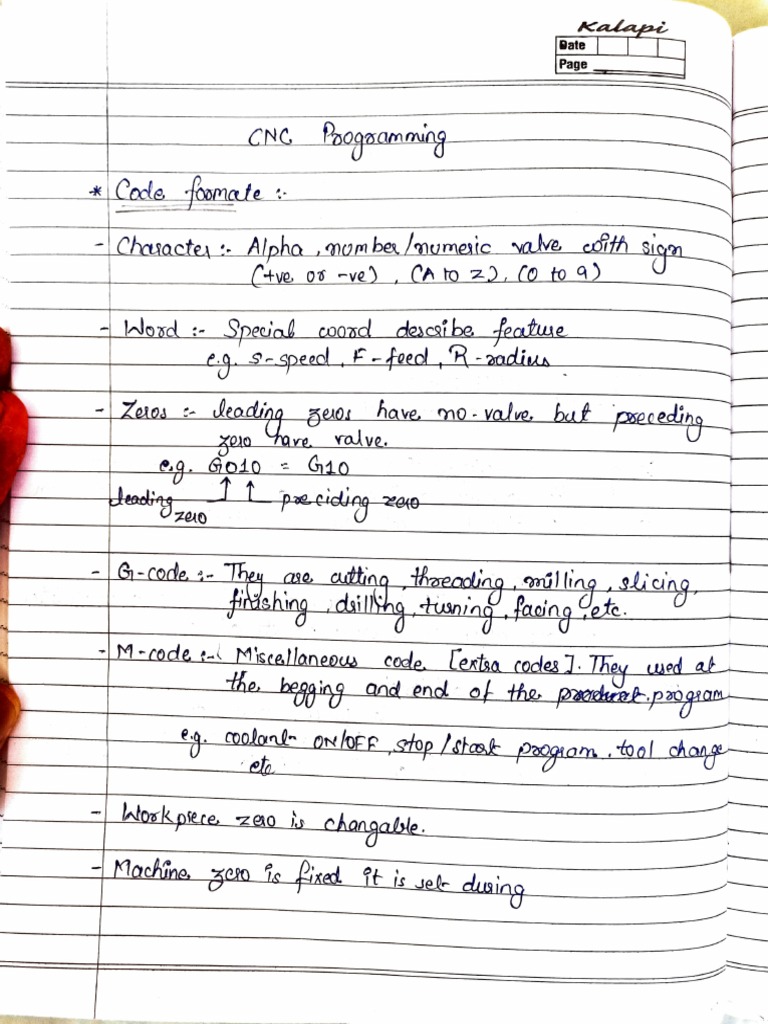 Kalapi
Date
Page
CNC Programming
* Code formate :-
- Character :- Alpha, number/numeric valve with sign
(+ve or -ve), (A to Z), (0 to 9)
- Word :- Special word describe feature
e.g. S-speed, F-feed, R-radius
- Zeros :- leading zeros have no-valve but preceding
zero have valve.
e.g. G010 = G10
leading ↑ ↑ preciding zero
zero
- G-code :- They are cutting, threading, milling, slicing,
finishing, drilling, turning, facing, etc.
- M-code :- Miscellaneous code [extra codes]. They used at
the begging and end of the program
e.g. coolant ON/OFF, stop/start program, tool change
etc
- Workpiece zero is changable.
- Machine zero is fixed it is set during